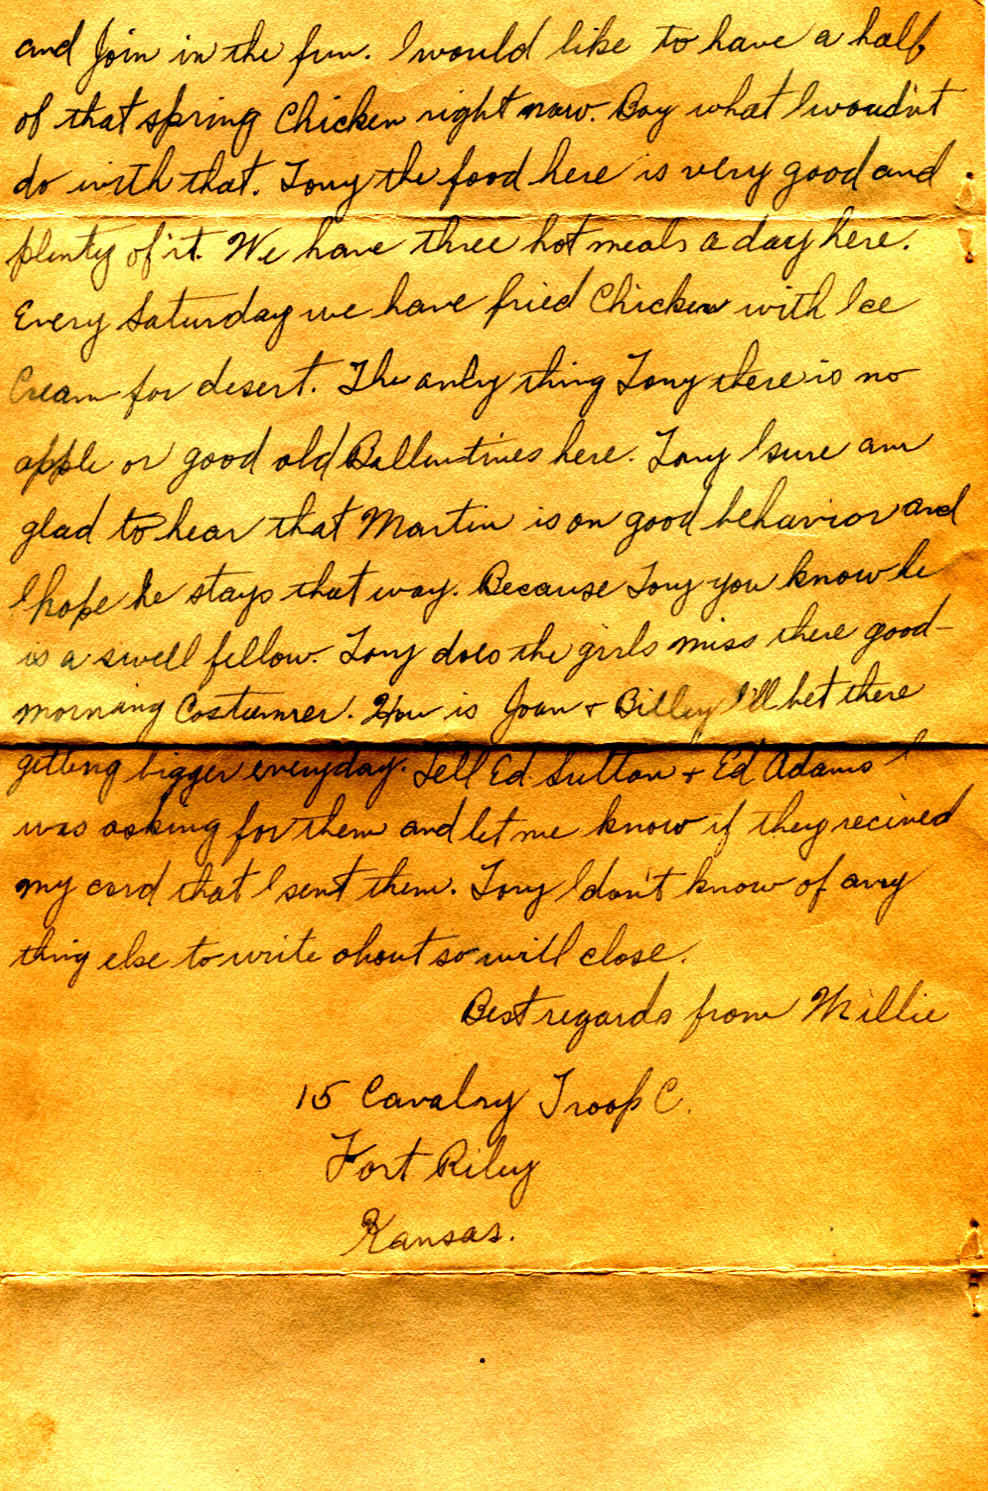 and Join in the fun. I would like to have a half
of that spring Chicken right now. Boy what I woudn't
do with that. Tony the food here is very good and
plenty of it. We have three hot meals a day here.
Every Saturday we have fried Chicken with Ice
Cream for desert. The only thing Tony there is no
apple or good old Ballentines here. Tony I sure am
glad to hear that Martin is on good behavior and
I hope he stays that way. Because Tony you know he
is a swell fellow. Tony does the girls miss there good-
morning Costumer. How is Joan + Billey I'll bet there
getting bigger everyday. Tell Ed Sutton + Ed Adams I
was asking for them and let me know if they recived
my card that I sent them. Tony I don't know of any
thing else to write about so will close.
Best regards from Willie
15 Cavalry Troop C.
Fort Riley
Kansas.